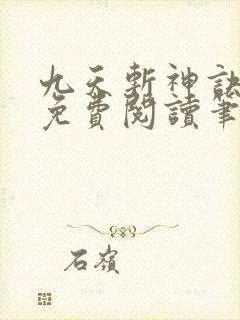 九天斬神訣
免費閱讀筆
石嶺